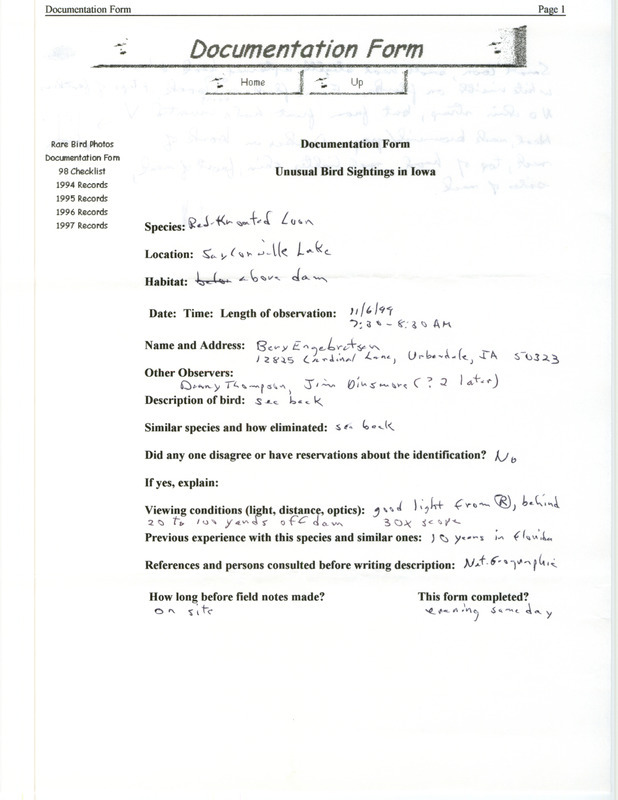 Documentation Form Page 1
Documentation Form
Home Up
Rare Bird Photos
Documentation Fom
98 Checklist
1994 Records
1995 Records
1996 Records
1997 Records
Documentation Form
Unusual Bird Sightings in Iowa
Species: Red-throated Loon
Location: Saylorville Lake
Habitat: below above dam
Date: Time: Length of observation: 11/6/99
7:30 - 8:30 AM
Name and Address: Bery Engebretsen
12825 Cardinal Lane, Urbandale, IA 50323
Other Observers:
Danny Thompson, Jim Dinsmore (? 2 later)
Description of bird: see back
Similar species and how eliminated: see back
Did any one disagree or have reservations about the identification? No
If yes, explain:
Viewing conditions (light, distance, optics): good light from Ⓡ, behind
20 to 100 yards off dam 30X scope
Previous experience with this species and similar ones: 10 years in Florida
References and persons consulted before writing description: Nat. Geographic
How long before field notes made? This form completed?
on site evening same day